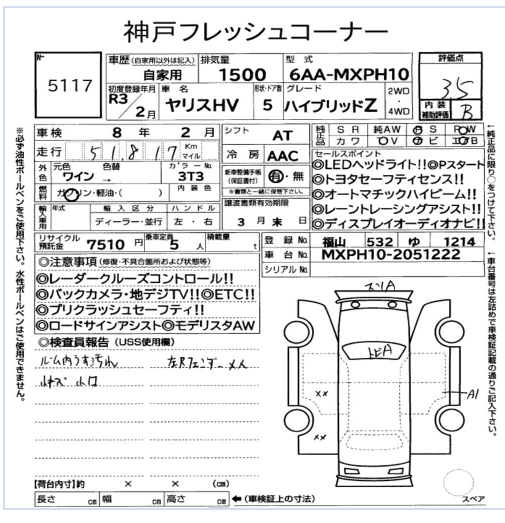 神戸フレッシュコーナー
№ 5117
車歴 (自家用以外は記入) 自家用
排気量 1500
型式 6AA-MXPH10
評価点 3.5
内装補助評価 B
初度登録年月 R3/2月
車名 ヤリスHV
形 ドア数 5
グレード ハイブリッドZ
2WD・4WD
車検 8年 2月
シフト AT
純正品 SR 純AW PS PW カワ TV ナビ エアB
走行 51,817 Km マイル
冷房 AAC
外色 元色 ワイン → 色替
カラーNo. 3T3
新車整備手帳(保証書付) 有・無
※書類と一緒に保管下さい。
燃料 ガソリン・軽油・( )
内装色
輸入車用 年式 輸入区分 ハンドル
ディーラー・並行 左・右
譲渡書有効期限
3月末日
セールスポイント
◎LEDヘッドライト!!◎Pスタート
◎トヨタセーフティセンス!!
◎オートマチックハイビーム!!
◎レーントレーシングアシスト!!
◎ディスプレイオーディオナビ!!
リサイクル預託金 7510円
乗車定員 5人
積載量 t
登録No. 福山 532 ゆ 1214
車台No. MXPH10-2051222
シリアルNo.
◎注意事項(修復・不具合箇所および状態等)
◎レーダークルーズコントロール!!
◎バックカメラ・地デジTV!!◎ETC!!
◎プリクラッシュセーフティ!!
◎ロードサインアシスト◎モデリスタAW
◎検査員報告(USS使用欄)
ルーム内うす汚れ
左Rフェンダーメん
小キズ 小凹
フロA
トビA
××
××
A1
スペア
【荷台内寸】約 × × (cm)
長さ cm 幅 cm 高さ cm ←(車検証上の寸法)
※必ず油性ボールペンをご使用下さい。水性ボールペンはご使用できません。
←純正品に限り○をつけて下さい。
←車台番号は左詰めで車検証記載の通りご記入下さい。